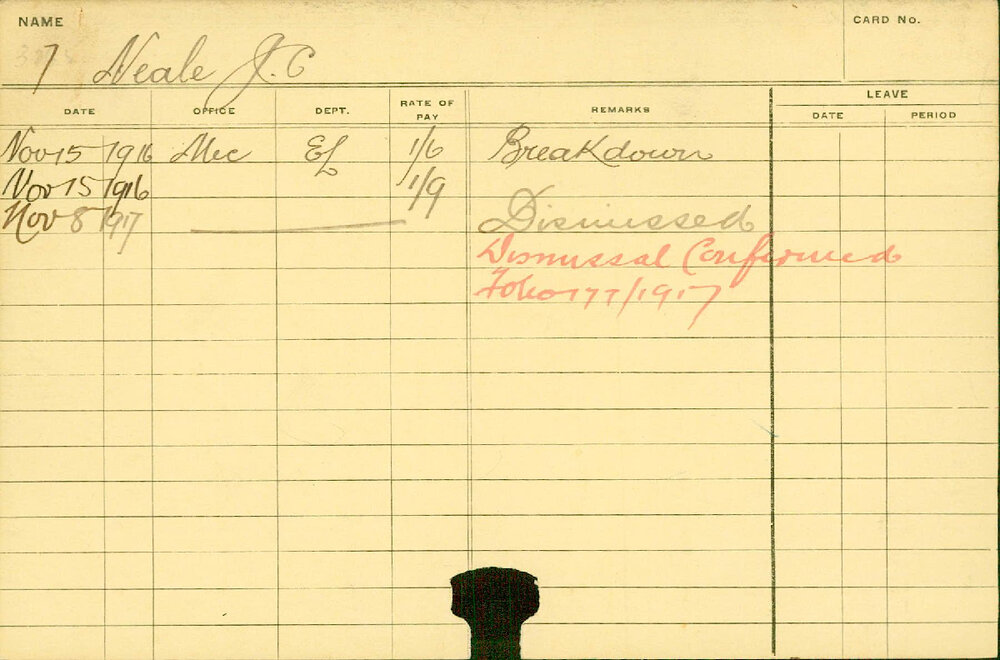 NAME
CARD No.
7 Neale J. C
DATE OFFICE DEPT. RATE OF PAY REMARKS LEAVE
DATE PERIOD
Nov 15 1916 Mec EL 1/6 Breakdown
Nov 15 1916 1/9
Nov 8 1917 Dismissed
Dismissal Confirmed
Folio 177/1917